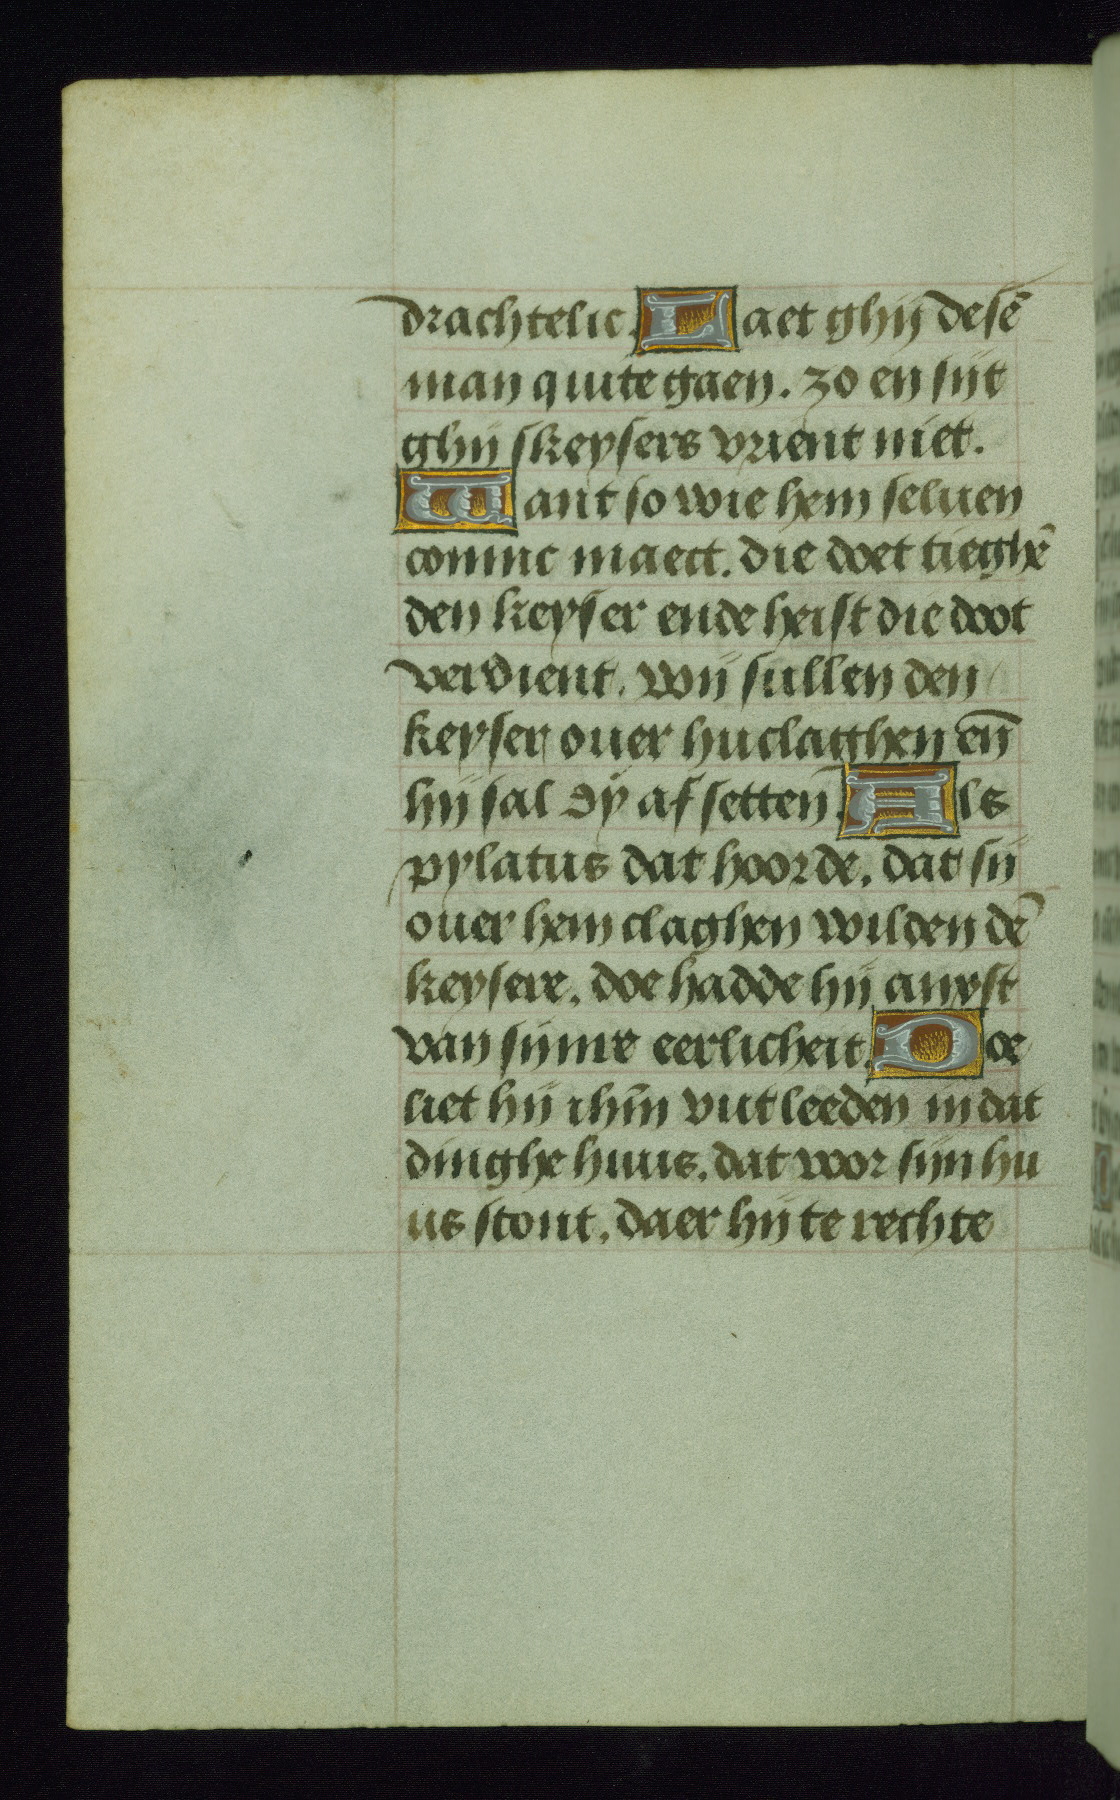 drachtelic. Laet ghij desē
man quite gaen. zo en sijt
ghij skeysers vrient niet.
Want so wie hem seluen
coninc maect. die doet tieghē
den keyser ende heist die doot
verdient. wij sullen den
keyser ouer hu claghen eñ
hij sal dÿ af setten. Als
pylatus dat hoorde. dat sij
ouer hem claghen wilden dē
keysere. doe hadde hij anxst
van sijnre eerlicheit. Doe
liet hij ihm̄ vut leeden in dat
dinghe huus. dat voor sijn hu
us stont. daer hij te rechte